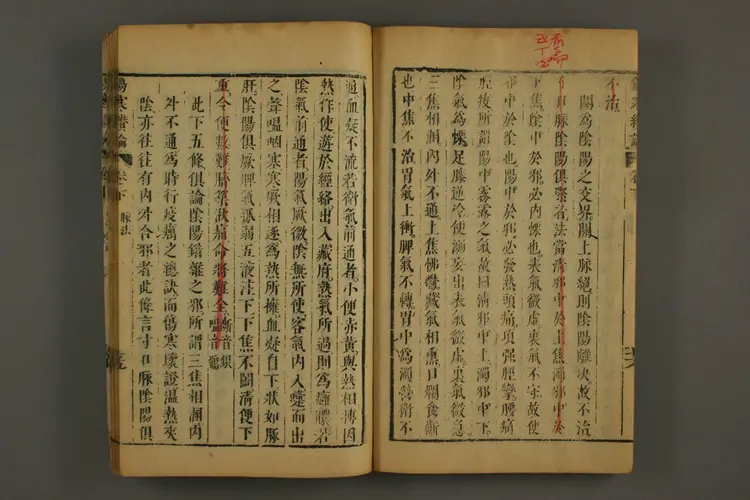 不治
關爲陰陽之交界關上脉絕則陰陽離決故不治
寸口脉陰陽俱緊者法當清邪中於上焦濁邪中於
下焦清邪中於上名曰潔也濁邪中於下名曰渾也
陰中於邪必內慄也表氣微虛裏氣不守故使
邪中於陰也陽中於邪必發熱頭痛項强頸攣腰痛
脛痠所謂陽中霧露之氣故曰清邪中上濁邪中下
陰氣爲慄足膝逆冷便溺妄出表氣微虛裏氣微急
三焦相溷內外不通上焦怫鬱藏氣相熏口爛食斷
也中焦不治胃氣上衝脾氣不轉胃中爲濁營衛不
通血凝不流若衛氣前通者小便赤黃與熱相搏因
熱作使遊於經絡出入藏府熱氣所過則爲癰膿若
陰氣前通者陽氣厥微陰無所使客氣內入嚏而出
之聲嗢咽塞寒厥相逐爲熱所擁血凝自下狀如豚
肝陰陽俱厥脾氣孤弱五液注下下焦不闔清便下
重令便數難臍築湫痛命將難全
此下五條俱論陰陽錯雜之邪所謂三焦相溷內
外不通爲時行疫癘之總訣而傷寒壞證溫熱夾
陰亦往往有內外合邪者此條言寸口脉陰陽俱
傷寒纘論 卷下 脉法